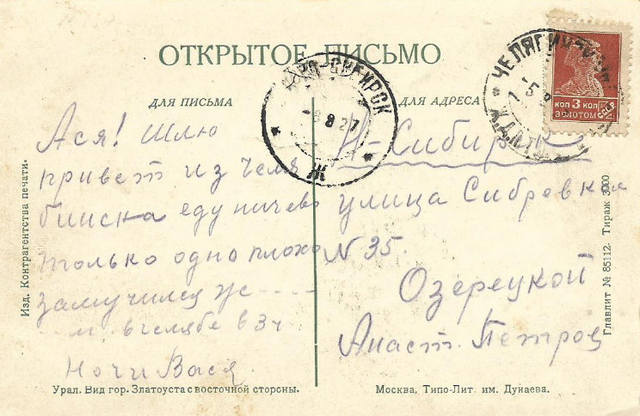 ОТКРЫТОЕ ПИСЬМО
ДЛЯ ПИСЬМА
Ася! Шлю
привет из Челя
бинска еду ничево
только одно плохо
замучился
в 3ч
Ночи Вася
ДЛЯ АДРЕСА
Н-Сибирск
улица Сибревкома
N 35
Озерецкой
Анаст. Петров
8 8 27
Ж
ЧЕЛЯБИНСК
КОП 3 КОП
ЗОЛОТОМ
Изд. Контрагентства печати
Главлит № 85112. Тираж 3000
Урал. Вид гор. Златоуста с восточной стороны.
Москва, Типо-Лит. им. Дунаева.